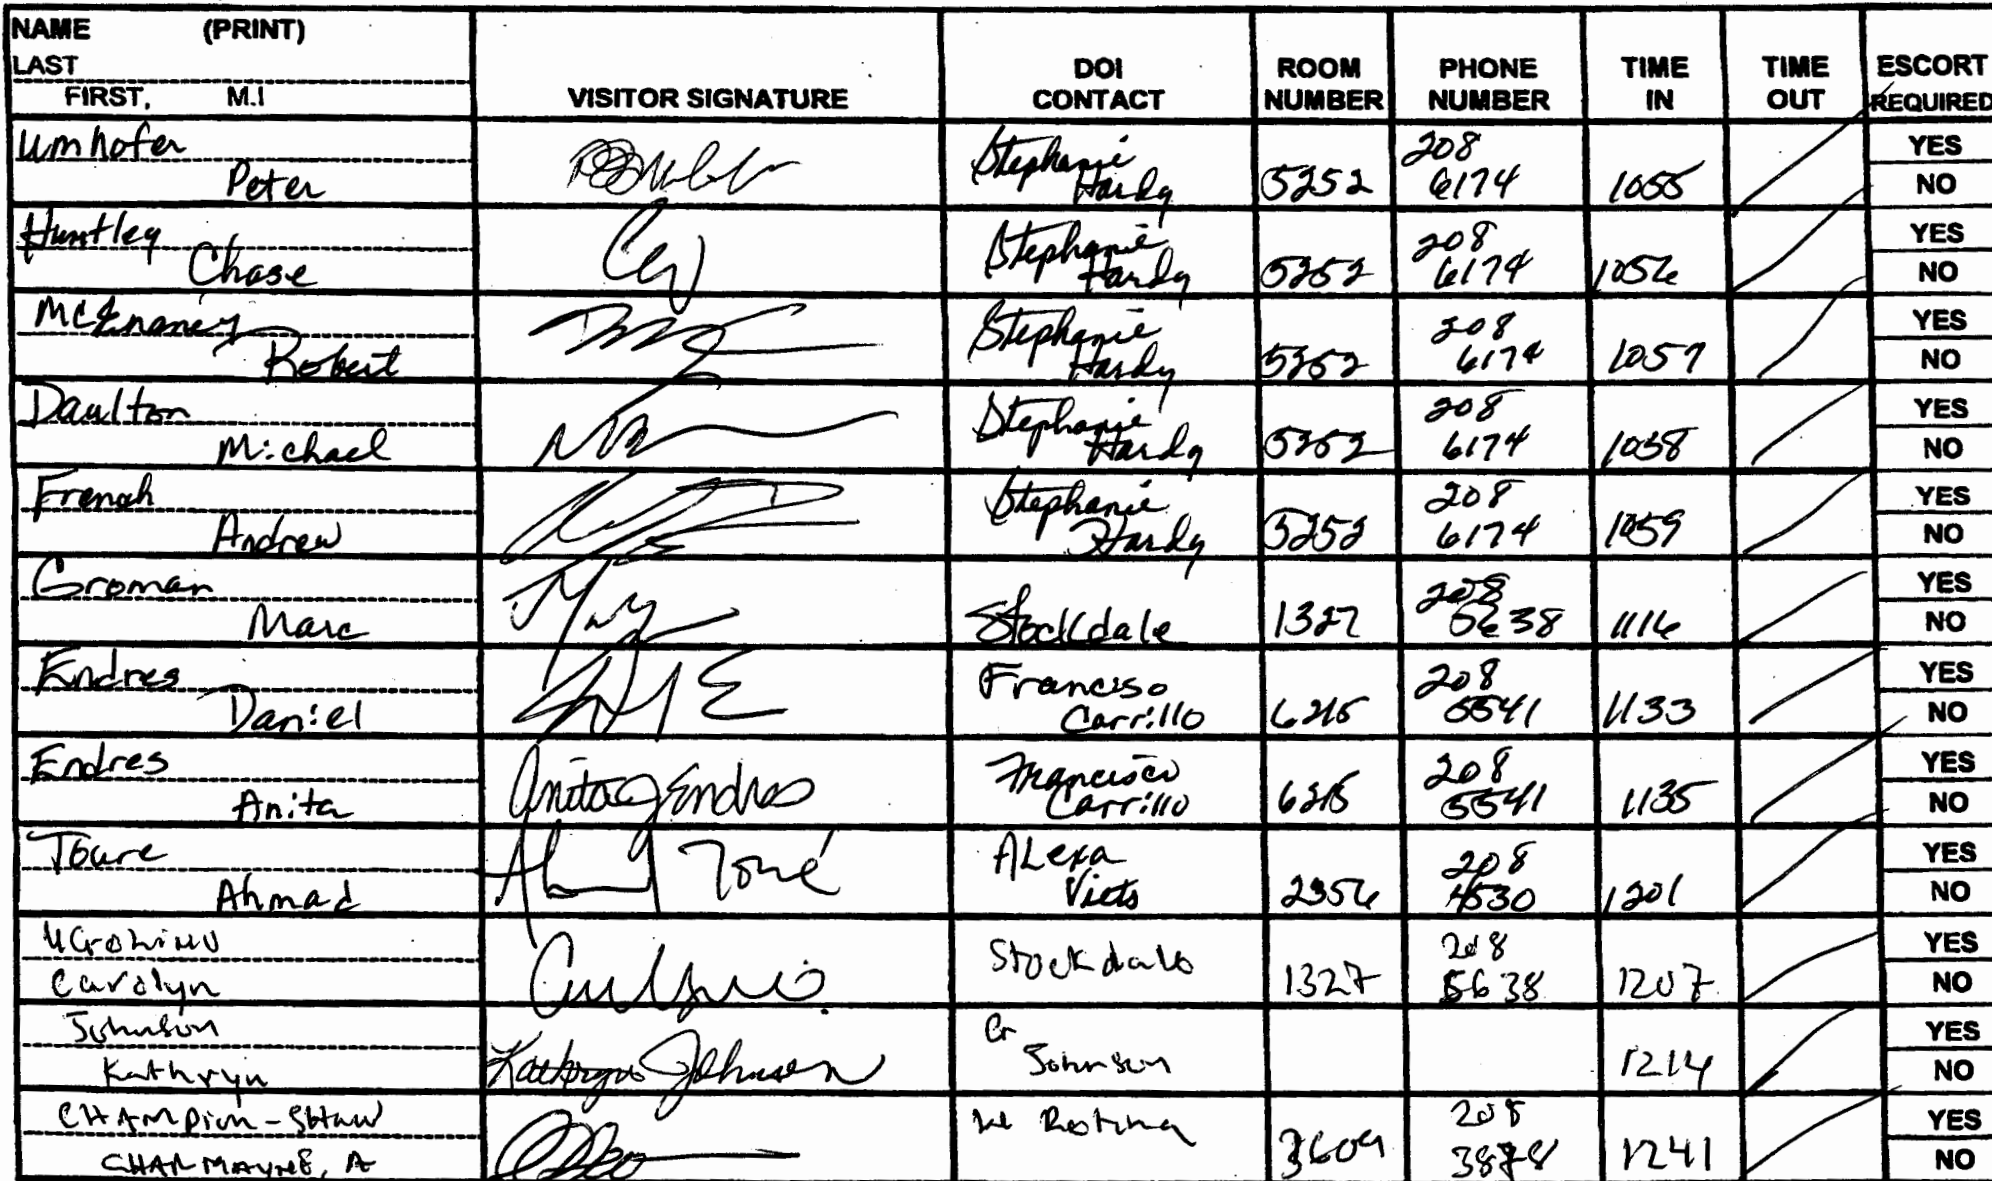 NAME (PRINT)
LAST
FIRST, M.I
VISITOR SIGNATURE
DOI CONTACT
ROOM NUMBER
PHONE NUMBER
TIME IN
TIME OUT
ESCORT REQUIRED
Umhofer Peter Stephanie Hardy 5252 208 6174 1055 YES NO
Huntley Chase Stephanie Hardy 5252 208 6174 1056 YES NO
McEnaney Robert Stephanie Hardy 5252 208 6174 1057 YES NO
Daulton Michael Stephanie Hardy 5252 208 6174 1058 YES NO
French Andrew Stephanie Hardy 5252 208 6174 1059 YES NO
Groman Marc Stockdale 1327 208 5638 1116 YES NO
Endres Daniel Franciso Carrillo 6215 208 5541 1133 YES NO
Endres Anita Anita J Endres Francisco Carrillo 6215 208 5541 1135 YES NO
Toure Ahmad Alexa Viets 2356 208 4530 1201 YES NO
Ugolino Carolyn Stockdale 1327 208 5638 1207 YES NO
Johnson Kathryn Kathryn Johnson Johnson 1214 YES NO
CHAMPION-SHAW CHARMAYNE, A 3609 208 1241 YES NO